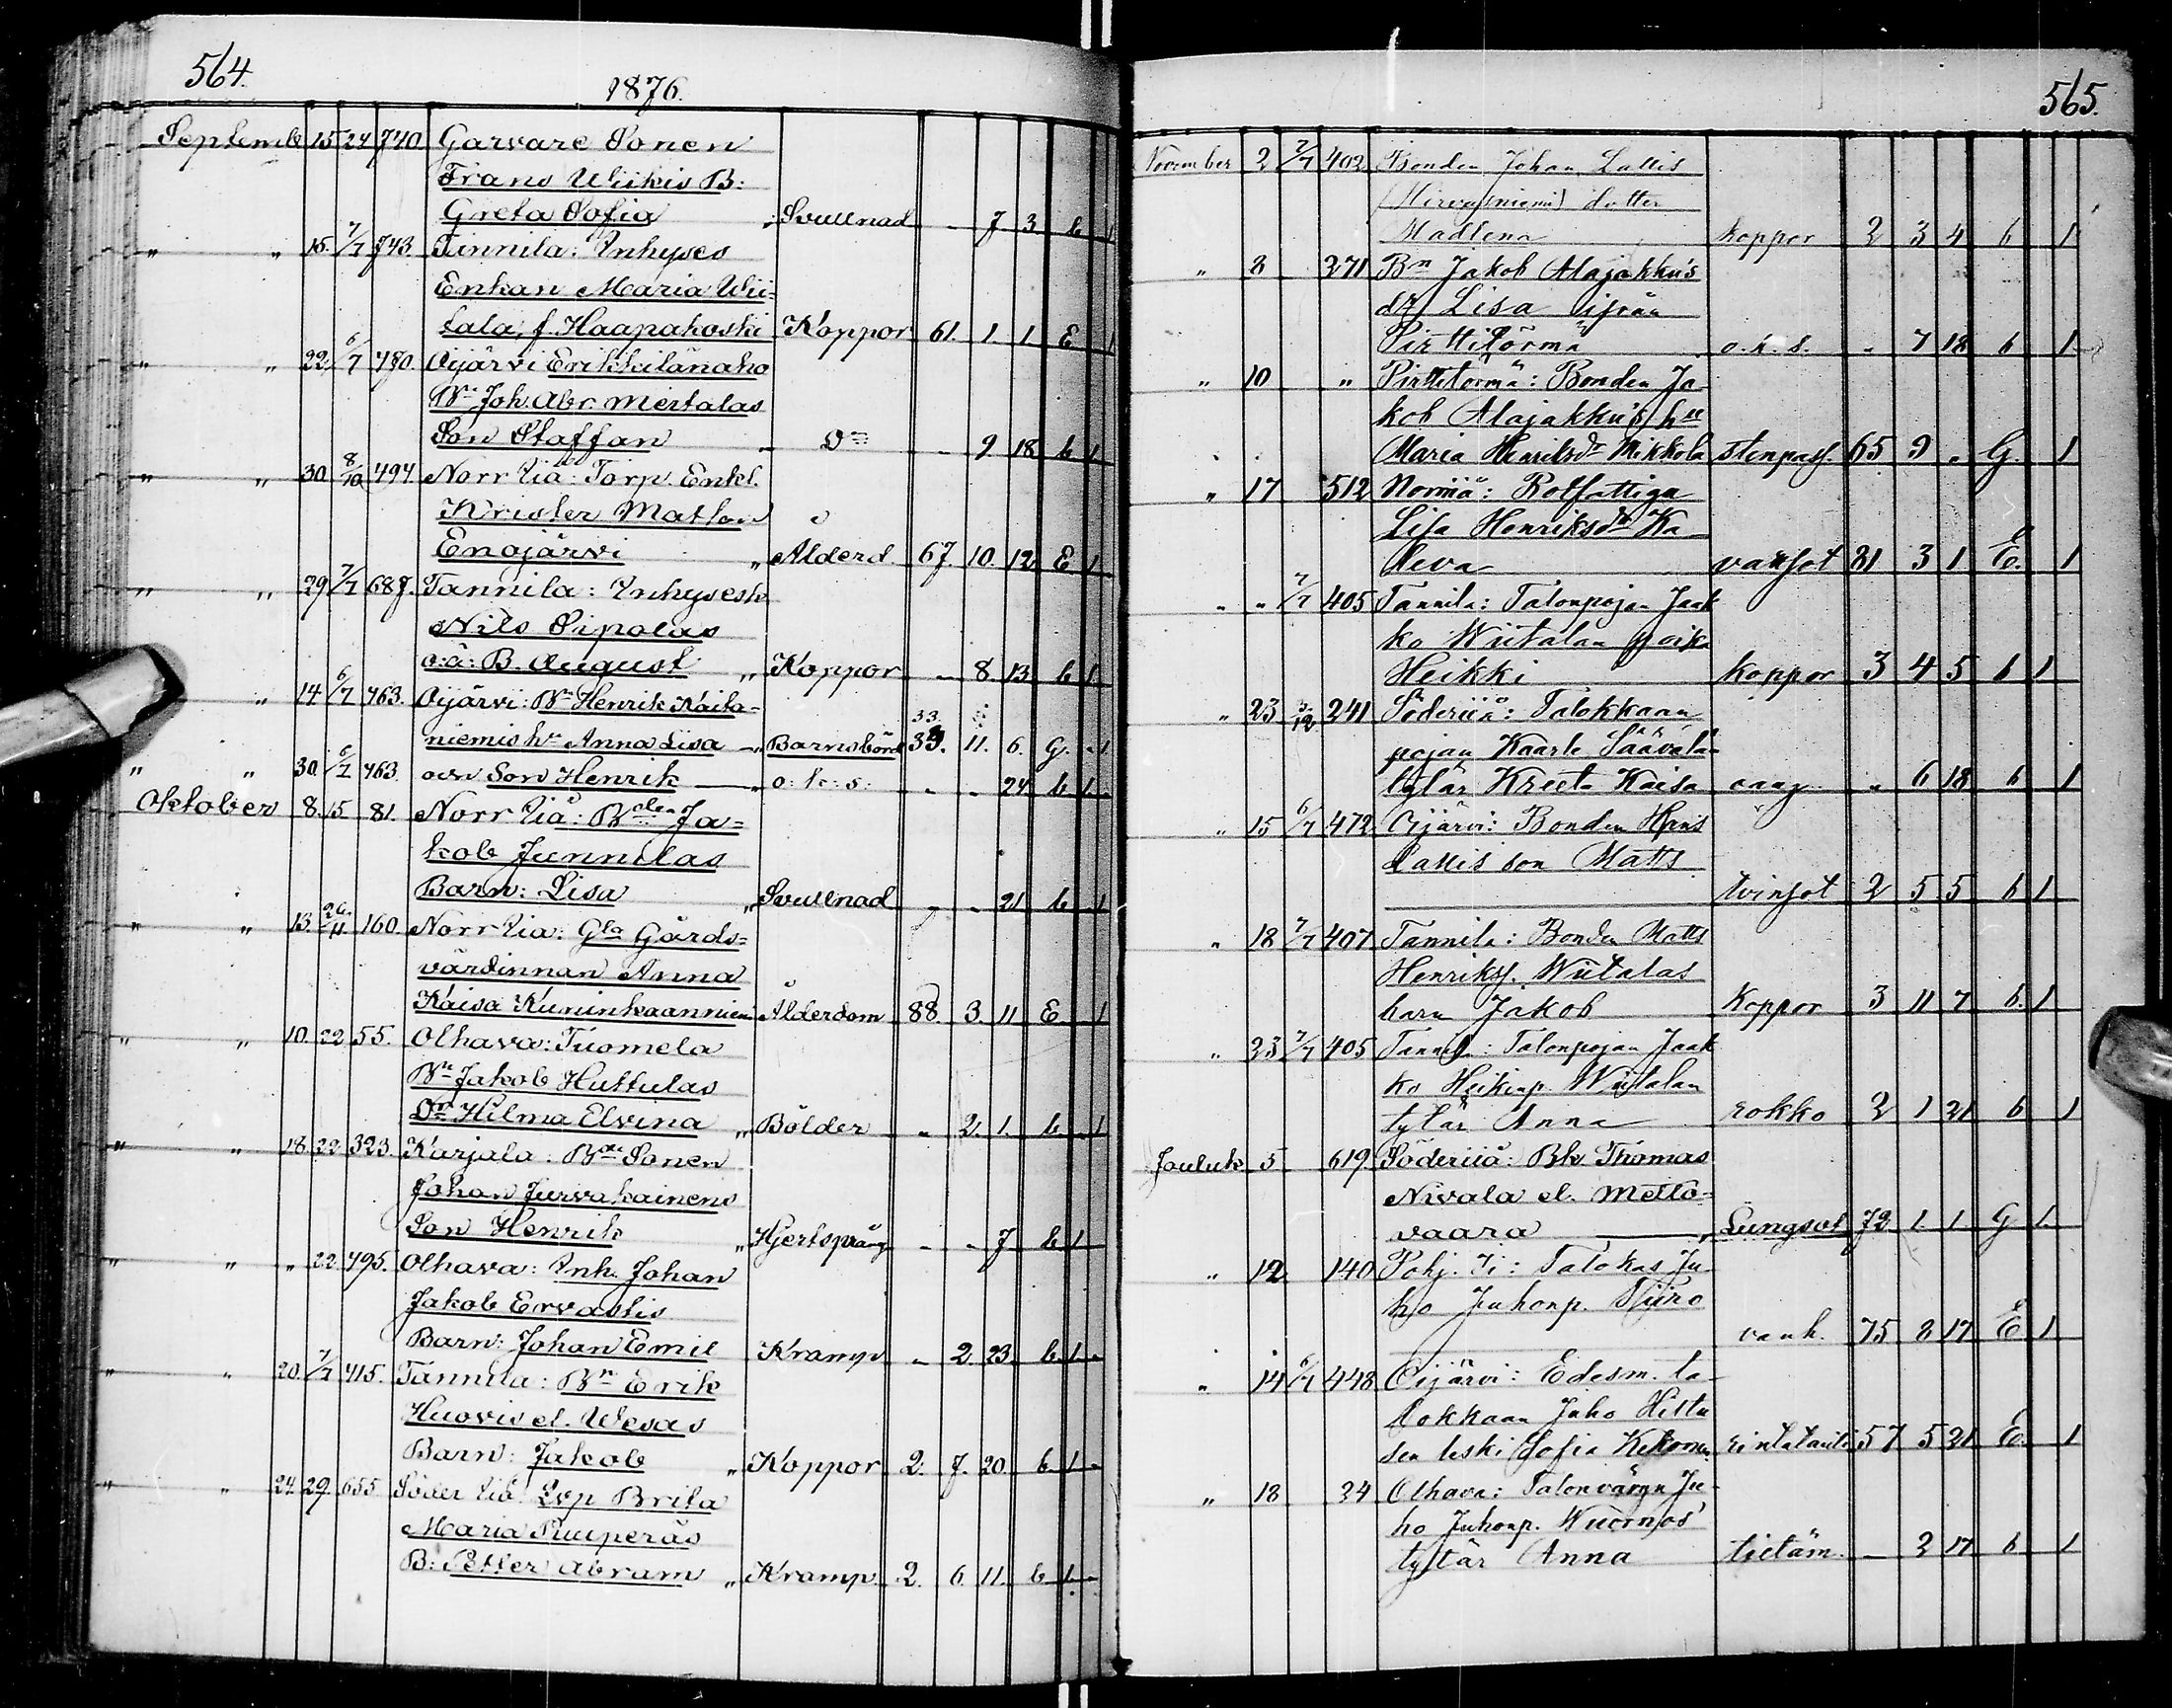 564.
1876.
Septemb 15 24 740 Garvare Sonen
Frans Wiikis B:
Greta Sofia „ Svullnad - 7 3 b 1
„ „ 15. 7/7 743. Tannila: Inhyses
Enkan Maria Wii-
tala, f. Haapakoski Koppor 61. 1 1 E 1
„ „ 22. 6/7 480. Oijärvi Erikkilänaho
Bn Joh. Abr. Mertalas
Son Staffan „ Do - 9 18 b 1
„ „ 30. 8/10 494. Norr Iiå: Torp. Enkl.
Krister Matson
Enojärvi „ Ålderd. 67. 10. 12 E. 1
„ „ 29 7/7 687. Tannila: Inhysesk
Nils Sipolas
o:ä: B. August „ Koppor - 8 13 b 1
„ 14 6/7 463. Oijärvi: Bn Henrik Kaila-
niemis hu Anna Lisa „ Barnsbörd 33. 11. 6. G. 1
„ „ 30. 6/7 463. och Son Henrik „ o: k: s: - - 24 b 1.
Oktober 8. 15 81. Norr Iiå: Bden Ja-
kob Junnilas
Barn: Lisa „ Svullnad - - 21 b 1
„ „ 13. 26/11 160. Norr Iiå: Gla Gårds-
värdinnan Anna
Kaisa Kuninkaanniemi Ålderdom 88. 3. 11 E. 1
„ „ 10. 22 55. Olhava: Tuomela
Bn Jakob Huttulas
Dr Hilma Elvina „ Bölder - 2. 1. b. 1
„ „ 18. 22. 323. Karjala: Bde Sonen
Johan Jurvakainens
Son Henrik „ Hjertsprång - - 7 b 1
„ „ „ 22. 495. Olhava: Inh. Johan
Jakob Ervastis
Barn: Johan Emil Kramp - 2. 23. b. 1.
„ „ 20. 7/7 415. Tannila: Bn Erik
Huovis el. Wesas
Barn: Jakob „ Koppor 2. 7. 20. b. 1
„ „ 24. 29. 655 Söder Iiå: Lvp Brita
Maria Ruuperäs
B: Petter Abram „ Kramp 2. 6. 11. b 1.
565.
November 2 7/7 402 Bonden Johan Lallis
(Hirvasniemi) dotter
Madlena koppor 2 3 4 b 1
„ 8 271 Bn Jakob Alajakku's
dr Lisa ifrån
Pirttitörmä o. k. s. „ 7 18 b 1
„ 10 „ Pirttitörmä: Bonden Ja-
kob Alajakku's hu
Maria Henriksdr Mikkola stenpass. 65 9 „ G. 1
„ 17 512 Norriiå: Rotfattiga
Lisa Henriksdr Ka
leva vattsot 81 3 1 E. 1
„ „ 7/7 405 Tannila: Talonpojan Jaak
ko Wiitalan poika
Heikki koppor 3 4 5 b 1
„ 23 3/12 241 Söderiiå: Talokkaan
pojan Kaarle Säävälän
tytär Kreeta Kaisa „ 6 18 b 1
„ 15 6/7 472 Oijärvi: Bonden Hans
Lallis son Matts
tvinsot 2 5 5 b 1
„ 18 7/7 407 Tannila: Bonden Matts
Henrikss. Wiitalas
barn Jakob Koppor 3 11 7 b. 1
„ 23 7/7 405 Tannila: Talonpojan Jaak
ko Heikinp. Wiitalan
tytär Anna rokko 2 1 21 b 1
Jouluk 5 619. Söderiiå: Bk Thomas
Nivala el. Metto-
vaara „ Lungsot 72. 1. 1. G 1.
„ 12 140 Pohj. Ii: Talokas Ju
ho Juhonp. Niiro
vanh. 75 8 17 E 1
„ 14 6/7 448 Oijärvi: Edesm. ta-
lokkaan Juho Hiltu
sen leski Sofia Kekonen rintatauti 57 5 21 E. 1
„ 18 24 Olhava: Talonvävyn Ju-
ho Juhonp. Wuornos'
tytär Anna tietäm. - 2 17 b 1